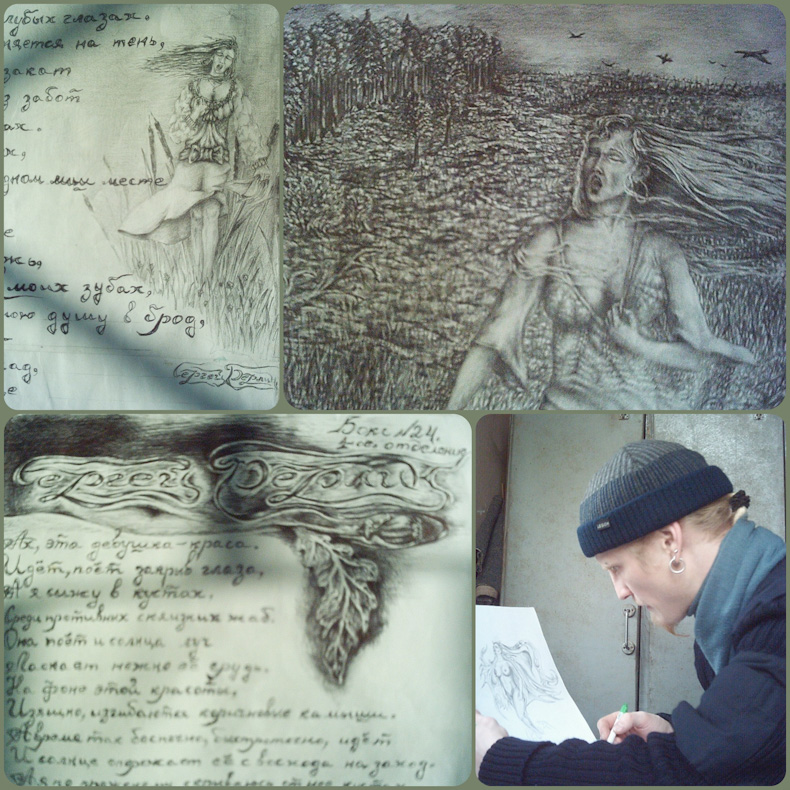 лубых глазах.
няется на тень,
закат
з забот
ах.
х,
дном месте
е
жь,
моих зубах,
ою душу в брод,
ад,
е
Сергей Дерлик
Бокс №24.
2-ое. отделения
Сергей Дерлик
Ах, эта девушка-краса.
Идёт, поёт заярно глаза,
А я сижу в кустах.
Среди противных склизких жаб.
Она поёт и солнца луч
Ласкает нежно её грудь.
На фоне этой красоты,
Изящно, изгибаются камыши.
А время так беспечно, идёт
И солнце её с восхода на заход.